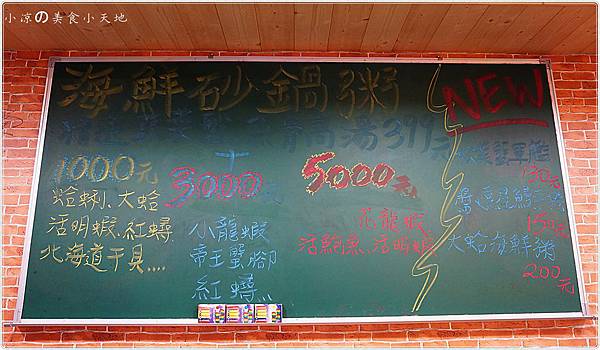 小凉の美食小天地
海鮮砂鍋粥
湯399元
1000元
蛤蜊、大蛤
活明蝦、紅蟳
北海道干貝....
3000元
小龍蝦
帝王蟹腳
紅蟳
5000元
花龍蝦
活鮑魚、活明蝦
NEW
130元
150元
大蛤海鮮粥
200元